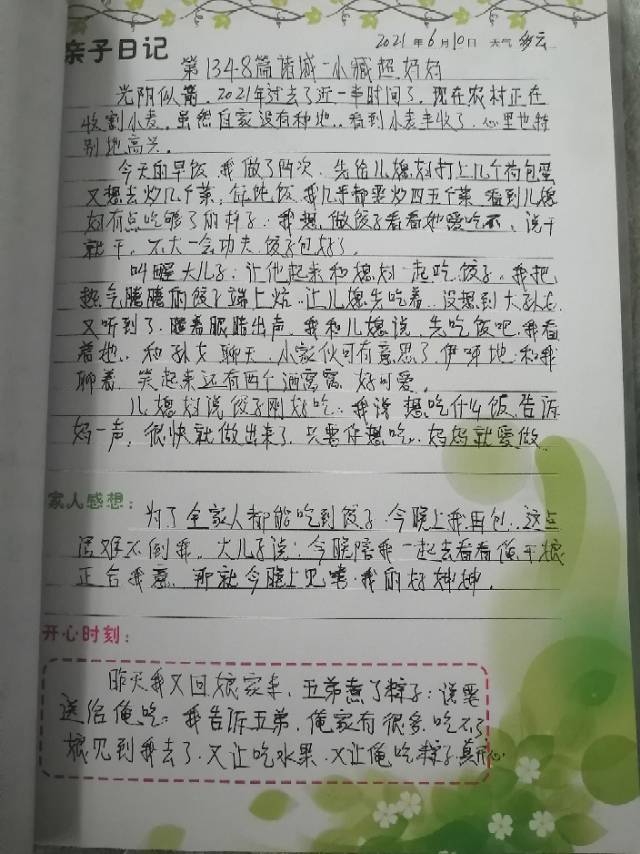 亲子日记
2021年6月10日 天气 多云
第1348篇诸城-小臧超妈妈
光阴似箭，2021年过去了近一半时间了，现在农村正在
收割小麦，虽然自家没有种地，看到小麦丰收了，心里也特
别地高兴。
今天的早饭，我做了两次，先给儿媳妇打上几个荷包蛋
又想去炒几个菜，每顿饭，我几乎都要炒四五个菜，看到儿媳
妇有点吃够了的样子，我想，做饺子看看她爱吃不，说干
就干，不大一会功夫，饺子包好了。
叫醒大儿子，让他起来和媳妇一起吃饺子，我把
热气腾腾的饺子端上炕，让儿媳先吃着，没想到大孙女
又听到了，睁着眼睛出声，我和儿媳说，先吃饭吧，我看
着她，和孙女聊天，小家伙可有意思了，伊呀地，和我
聊着，笑起来还有两个酒窝窝，好可爱。
儿媳妇说饺子刚好吃，我说，想吃什么饭，告诉
妈一声，很快就做出来了，只要你想吃，妈妈就爱做。
家人感想：
为了全家人都能吃到饺子，今晚上我再包，这点
困难不倒我。大儿子说，今晚陪我一起去看看俺干娘
正合我意，那就今晚上见喽，我的好婶婶。
开心时刻：
昨天我又回娘家来，五弟煮了粽子，说要
送给俺吃，我告诉五弟，俺家有很多，吃不了
娘见到我去了，又让吃水果，又让俺吃粽子，真开心